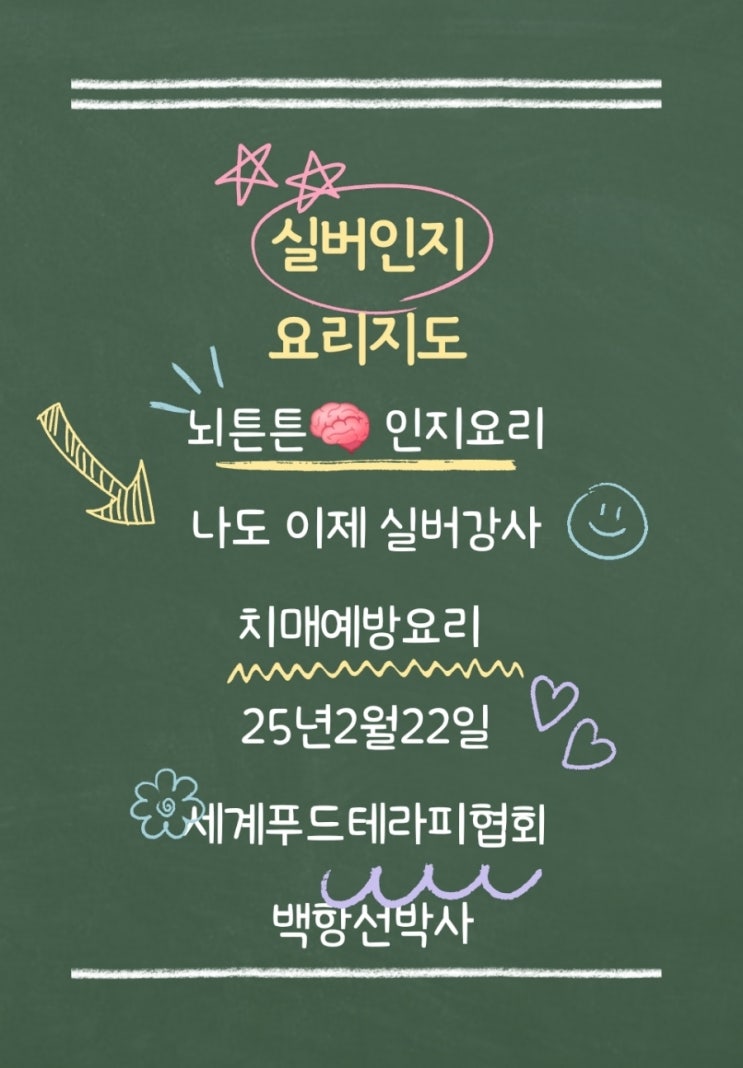 실버인지
요리지도
뇌튼튼🧠 인지요리
나도 이제 실버강사
치매예방요리
25년2월22일
세계푸드테라피협회
백항선박사